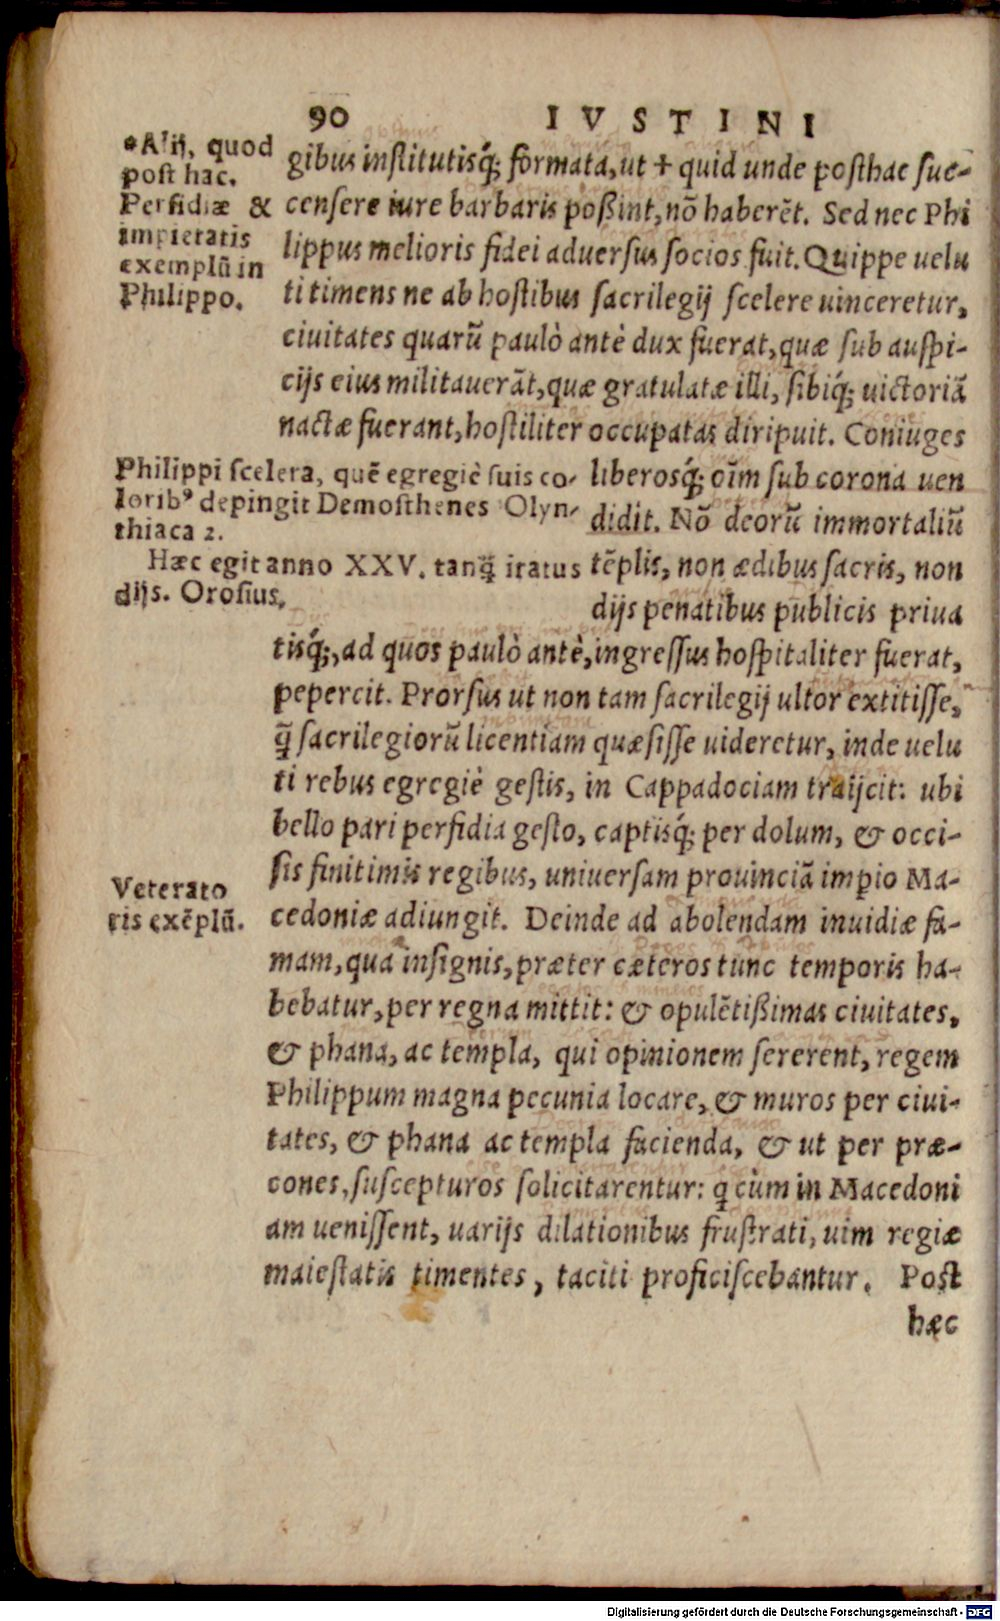 90 IVSTINI
*Alij, quod
post hac.
Perfidiæ &
impietatis
exemplũ in
Philippo.
gibus institutisq́; formata, ut + quid unde posthac suc-
censere iure barbaris poßint, nõ haberẽt. Sed nec Phi
lippus melioris fidei aduersus socios fuit. Quippe uelu
ti timens ne ab hostibus sacrilegij scelere uinceretur,
ciuitates quarũ paulò antè dux fuerat, quæ sub auspi-
cijs eius militauerãt, quæ gratulatæ illi, sibiq́; uictoriã
nactæ fuerant, hostiliter occupatas diripuit. Coniuges
Philippi scelera, quẽ egregiè suis co-
lorib⁹ depingit Demosthenes Olyn-
thiaca 2.
Hæc egit anno XXV. tanq̃ iratus
dijs. Orosius.
liberosq́; oĩm sub corona uen
didit. Nõ deorũ immortaliũ
tẽplis, non ædibus sacris, non
dijs penatibus publicis priua
tisq́;, ad quos paulò antè, ingressus hospitaliter fuerat,
pepercit. Prorsus ut non tam sacrilegij ultor extitisse,
q̃ sacrilegiorũ licentiam quæsisse uideretur, inde uelu
ti rebus egregiè gestis, in Cappadociam traijcit: ubi
bello pari perfidia gesto, captisq́; per dolum, & occi-
sis finitimis regibus, uniuersam prouinciã impio Ma-
Veterato
ris exẽplũ.
cedoniæ adiungit. Deinde ad abolendam inuidiæ fa-
mam, qua insignis, præter cæteros tunc temporis ha-
bebatur, per regna mittit: & opulẽtißimas ciuitates,
& phana, ac templa, qui opinionem sererent, regem
Philippum magna pecunia locare, & muros per ciui-
tates, & phana ac templa facienda, & ut per præ-
cones, suscepturos solicitarentur: q̃ cùm in Macedoni
am uenissent, uarijs dilationibus frustrati, uim regiæ
maiestatis timentes, taciti proficiscebantur. Post
hæc
Digitalisierung gefördert durch die Deutsche Forschungsgemeinschaft - DFG